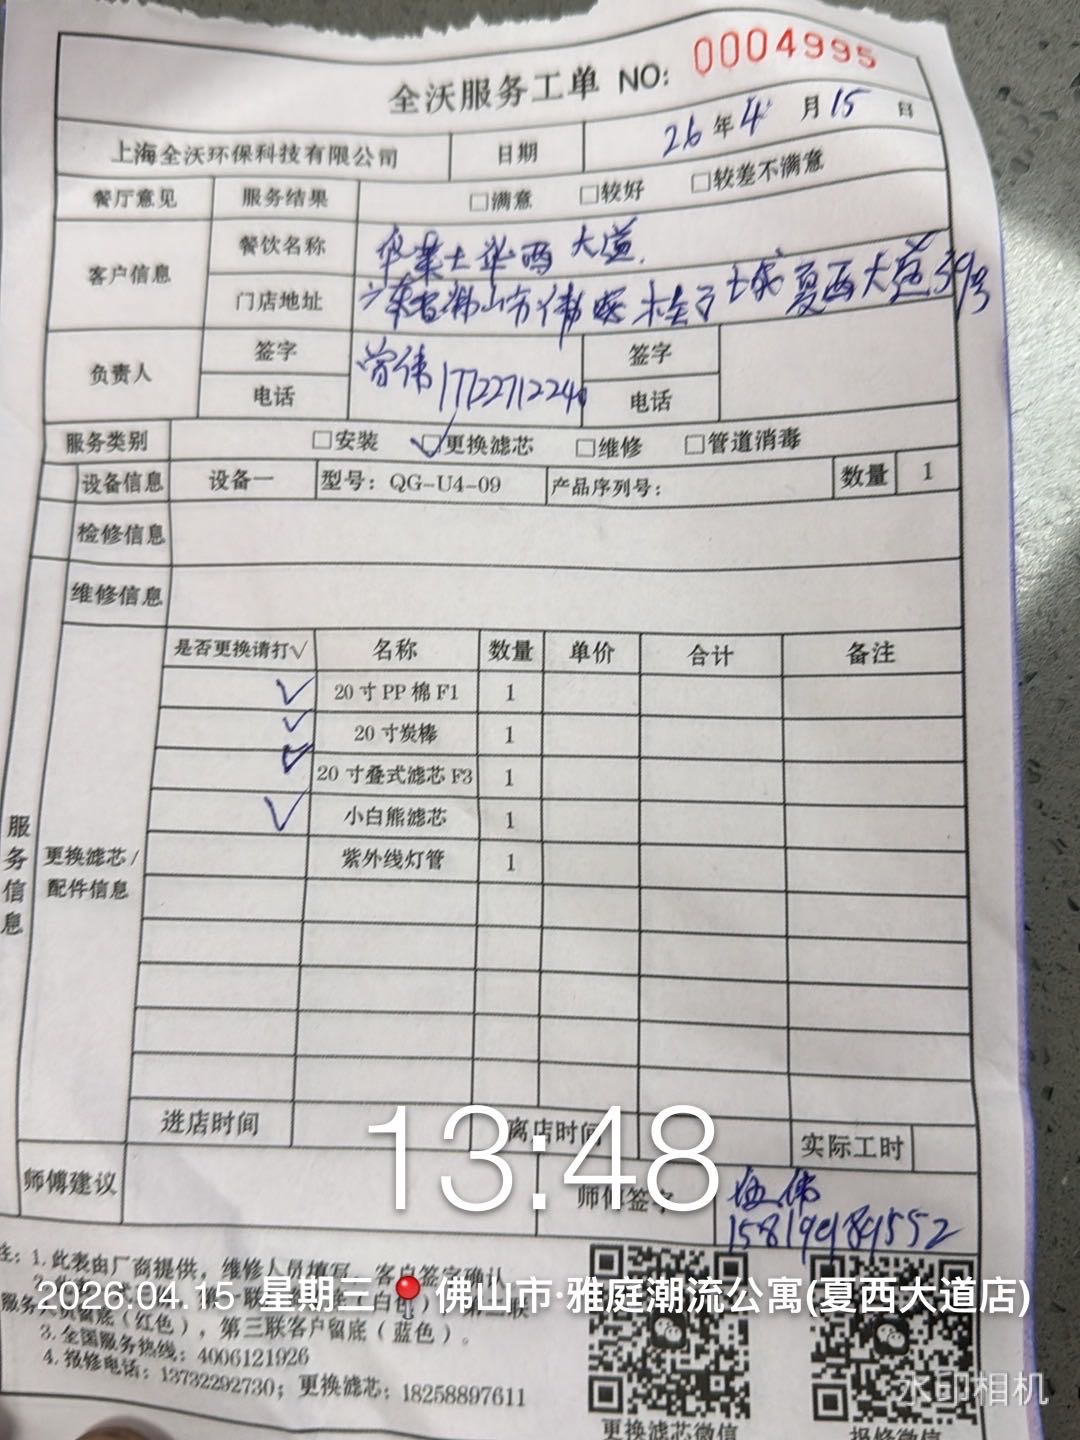 全沃服务工单 NO: 0004995
上海全沃环保科技有限公司 日期 26年4月15日
餐厅意见 服务结果 □满意 □较好 □较差不满意
客户信息 餐饮名称 华莱士 西大道
门店地址 广东省佛山市 桂 城夏西大道39号
负责人 签字 曾伟 签字
电话 17722712240 电话
服务类别 □安装 ✓□更换滤芯 □维修 □管道消毒
设备信息 设备一 型号：QG-U4-09 产品序列号： 数量 1
检修信息
维修信息
是否更换请打√ 名称 数量 单价 合计 备注
✓ 20寸PP棉F1 1
✓ 20寸炭棒 1
✓ 20寸叠式滤芯F3 1
✓ 小白熊滤芯 1
紫外线灯管 1
服务信息
更换滤芯/
配件信息
进店时间 离店时间 实际工时
13:48
师傅建议 师傅签字 伍伟
注：1.此表由厂商提供，维修人员填写，客户签字确认
2026.04.15 星期三 佛山市·雅庭潮流公寓(夏西大道店)
留底（红色），第三联客户留底（蓝色）。
3.全国服务热线：4006121926
4.报修电话：13732292730；更换滤芯：18258897611
更换滤芯微信 报修微信
水印相机